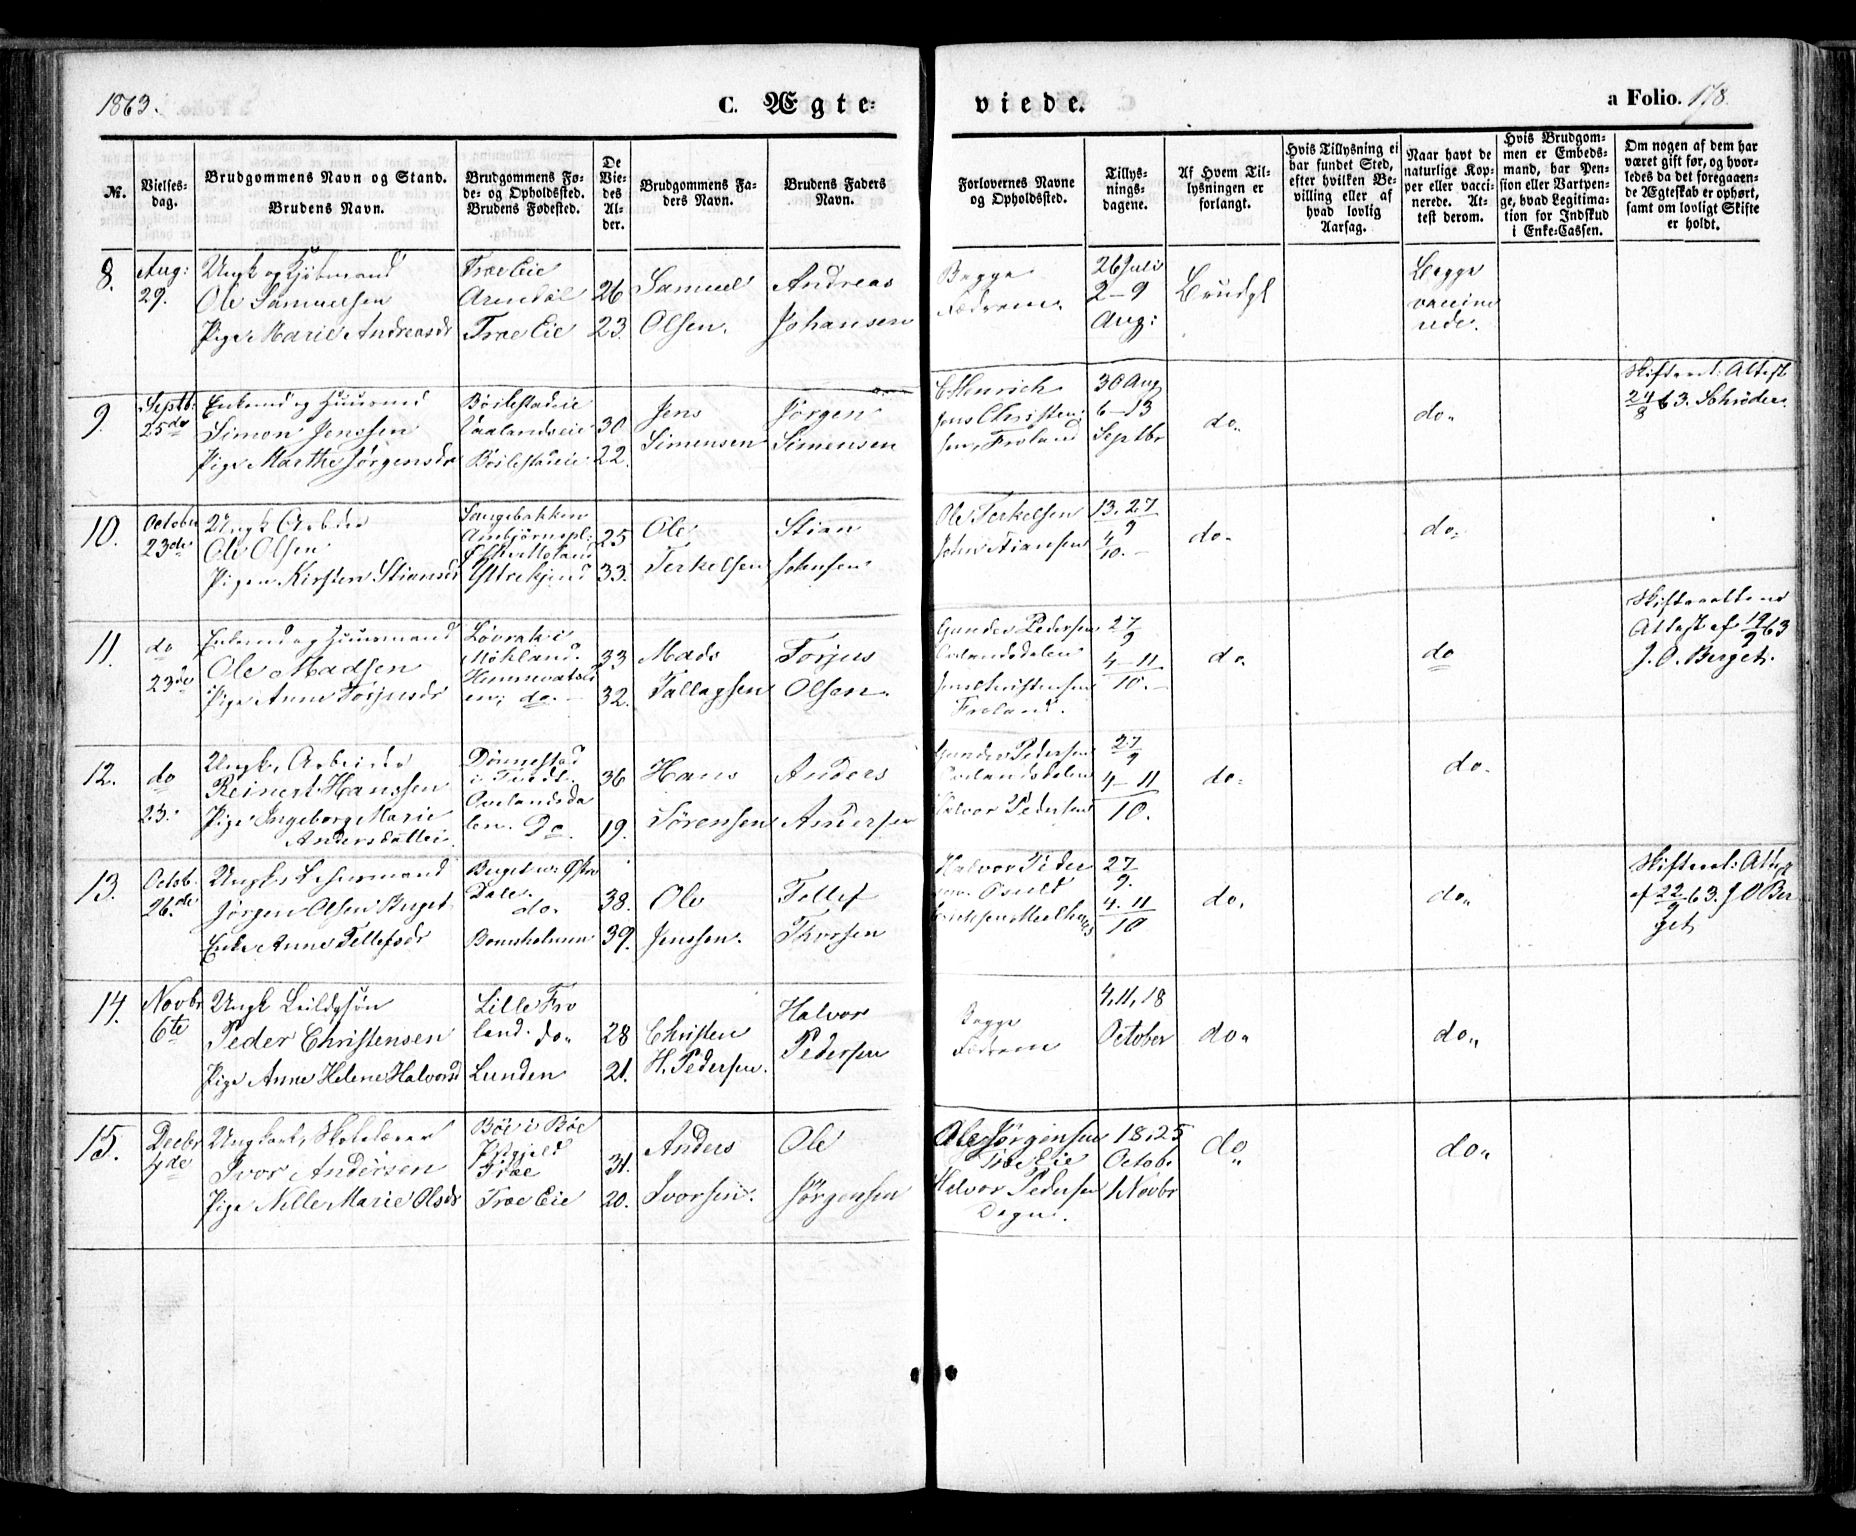 1863.
C. Ægte-
viede.
a Folio. 178.
№.
Vielses-
dag.
Brudgommens Navn og Stand.
Brudens Navn.
Brudgommens Fø-
de- og Opholdssted.
Brudens Fødested.
De
Vie-
des
Al-
der.
Brudgommens Fa-
ders Navn.
Brudens Faders
Navn.
Forlovernes Navne
og Opholdssted.
Tillys-
nings-
dagene.
Af Hvem Til-
lysningen er
forlangt.
Hvis Tillysning ei
har fundet Sted,
efter hvilken Be-
villing eller af
hvad lovlig
Aarsag.
Naar havt de
naturlige Kop-
per eller vacci-
nerede. At-
test derom.
Hvis Brudgom-
men er Embeds-
mand, har Pen-
sion eller Vartpen-
ge, hvad Legitima-
tion for Indskud
i Enke-Cassen.
Om nogen af dem har
været gift før, og hvor-
ledes da det foregaaen-
de Ægteskab er ophørt,
samt om lovligt Skifte
er holdt.
8.
Aug:
29.
Ungk og
Ole Samuelsen
Pige Marie Andreasdr
Træ Eie
Arendal
Træ Eie
26
23.
Samuel
Olsen.
Andreas
Johansen
Begge
Fædrene.
26 Juli
2-9
Aug:
Brudg
Begge
vaccine
rede.
9
Septb:
25de
Enkemd og Huusmd
Simon Jenssen
Pige Marthe Jørgensdr
Bøilestadeie
Bøilestadeie
30.
22.
Jens
Simensen
Jørgen
Simensen
Jens Christen-
sen, Froland
30 Aug
6-13
Septbr
do.
do.
Skifteret: Attest
24/8 63. Schrøder.
10.
Octobr
23de
Ungk Arbeider
Ole Olsen
Pigen Kirsten Stiansdr
25
33.
Ole
Terkelsen
Stian
Johnsen
Ole Terkelsen
John Stiansen
13. 27/9
4/10.
do.
do.
11.
do
23de
Enkemd og Huusmand
Ole Madsen
Pige Anne Torjusdr
Løvrak i
do.
33
32.
Mads
Tallagsen
Torjus
Olsen.
Gunder Pedersen
Ovelandsdalen
Jens Christensen
Froland.
27/9
4-11/10.
do.
do
Skifterettens
Attest af 19/9 63
J. O. Berget.
12.
do
23.
Ungk. Arbeider
Reinert Hanssen
Pige Ingeborg Marie
Andersdatter.
Dønnestad
Ovelandsda
len. Do.
36
19.
Hans
Sørensen
Anders
Andersen
Gunder Pedersen
Ovelandsdalen
Halvor Pedersen
27/9
4-11/10.
do.
do.
13.
Octob.
26de
Ungk. Leiermand
Jørgen Olsen Berget
Enke Anne Tellefsdr
Berget
Dale.
do.
Bomsholmen
38.
39.
Ole
Jenssen.
Tellef
Thorsen
Halvor Peder
27/9.
4. 11/10
do.
do.
Skifteret: Attest
af 22/9 63. J O Ber
get.
14.
Novbr
6te
Ungk Leildgsøn
Peder Christensen
Pige Anne Helene Halvorsd
Lille Fro
land. do.
Lunden
28
21.
Christen
H. Pedersen.
Halvor
Pedersen
Begge
Fædrene
4, 11, 18
October
do.
do.
15.
Decbr
4de
Ungkarl, Skolelærer
Ivor Andersen
Pige Nille Marie Olsdr
Bøe i Bøe
Præstgjeld
Træ
Træ Eie
31.
20.
Anders
Ivorsen.
Ole
Jørgensen
Ole Jørgensen
Træ Eie
Halvor Pedersen
18, 25
Octobr
1 Novbr
do
do.